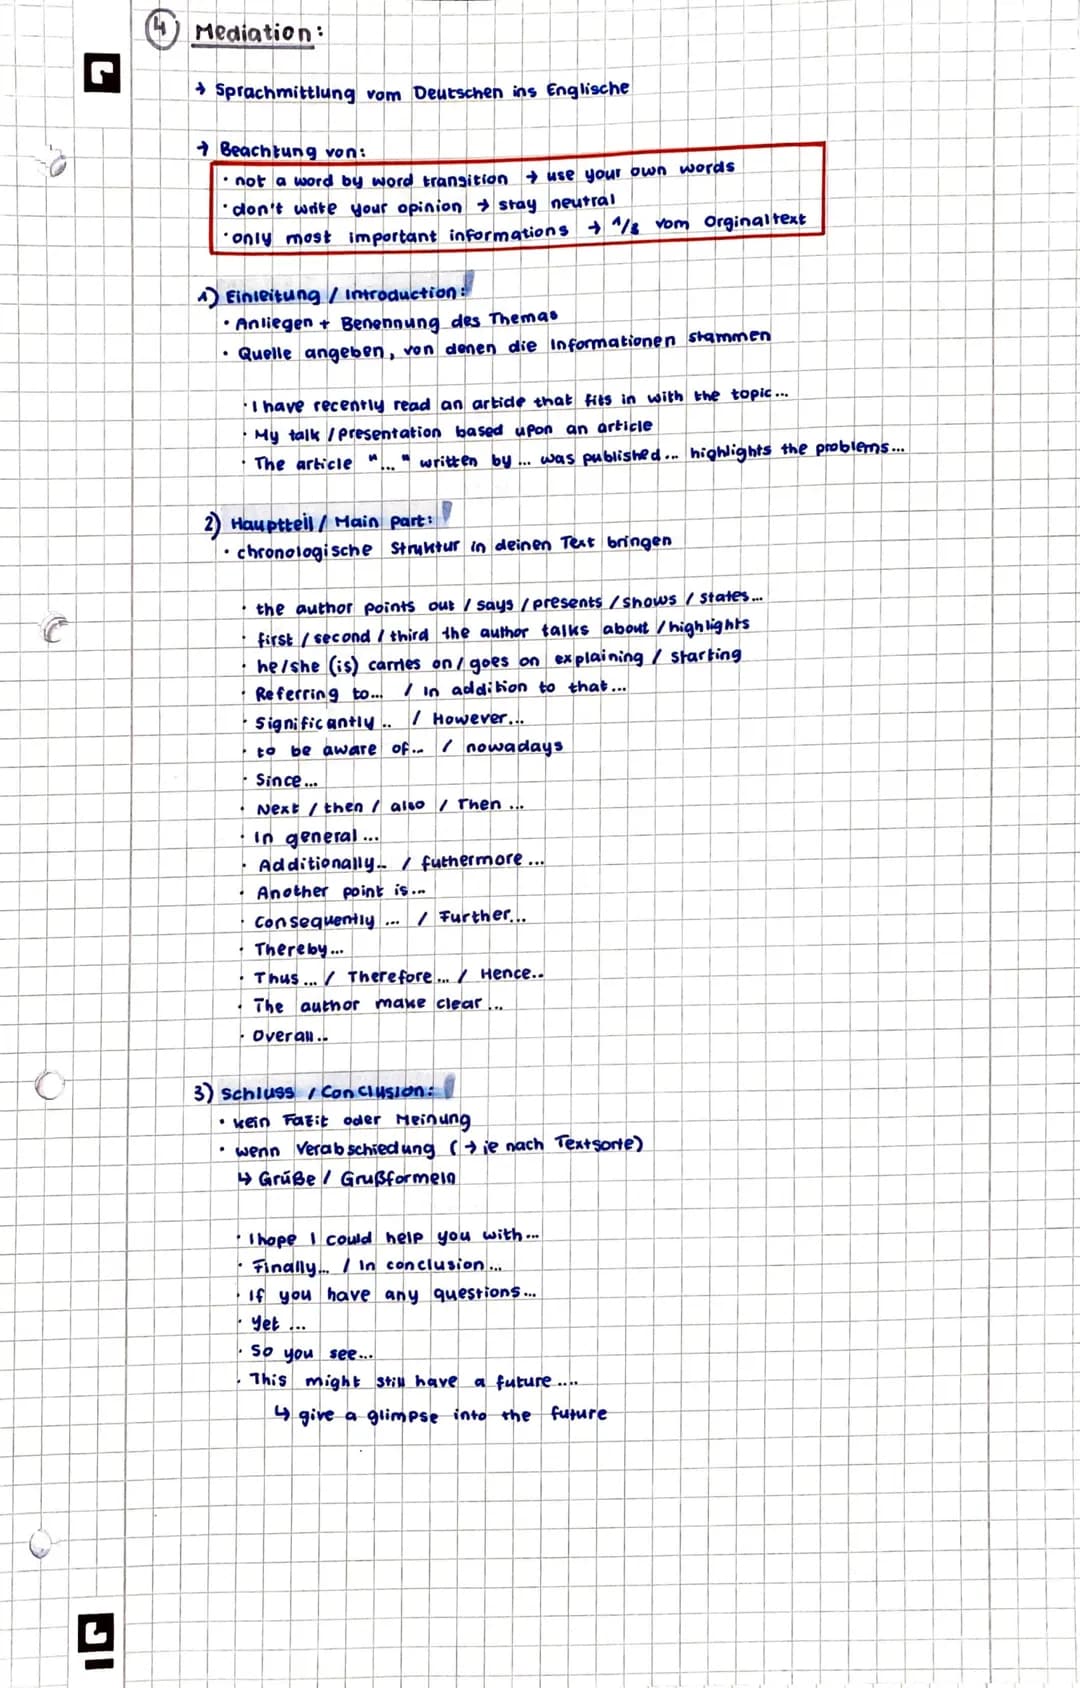 4 Mediation:
→ Sprachmittlung vom Deutschen ins Englische
→ Beachtung von:
• not a word by word transition → use your own words
• don't write your opinion → stay neutral
• only most important informations → 1/3 vom Orginaltext
1) Einleitung / Introduction:
• Anliegen + Benennung des Themas
• Quelle angeben, von denen die Informationen stammen
• I have recently read an article that fits in with the topic...
• My talk / presentation based upon an article
• The article "..." written by ... was published ... highlights the problems...
2) Hauptteil / Main part:
• chronologische Struktur in deinen Text bringen
• the author points out / says / presents / shows / states...
• first / second / third the author talks about / highlights
• he/she (is) carries on / goes on explaining / starting
• Referring to... / In addition to that...
• Significantly .. / However...
• to be aware of... / nowadays
• Since...
• Next / then / also / Then ...
• In general ...
• Additionally.. / futhermore ...
• Another point is...
• Consequently ... / Further...
• Thereby...
• Thus ... / Therefore ... / Hence..
• The author make clear ...
• Overall..
3) Schluss / Conclusion:
• kein Fazit oder Meinung
• wenn Verabschiedung (→ je nach Textsorte)
↳ Grüße / Grußformeln
• I hope I could help you with...
• Finally... / In conclusion ...
• If you have any questions...
• Yet ...
• So you see...
• This might still have a future ....
↳ give a glimpse into the future